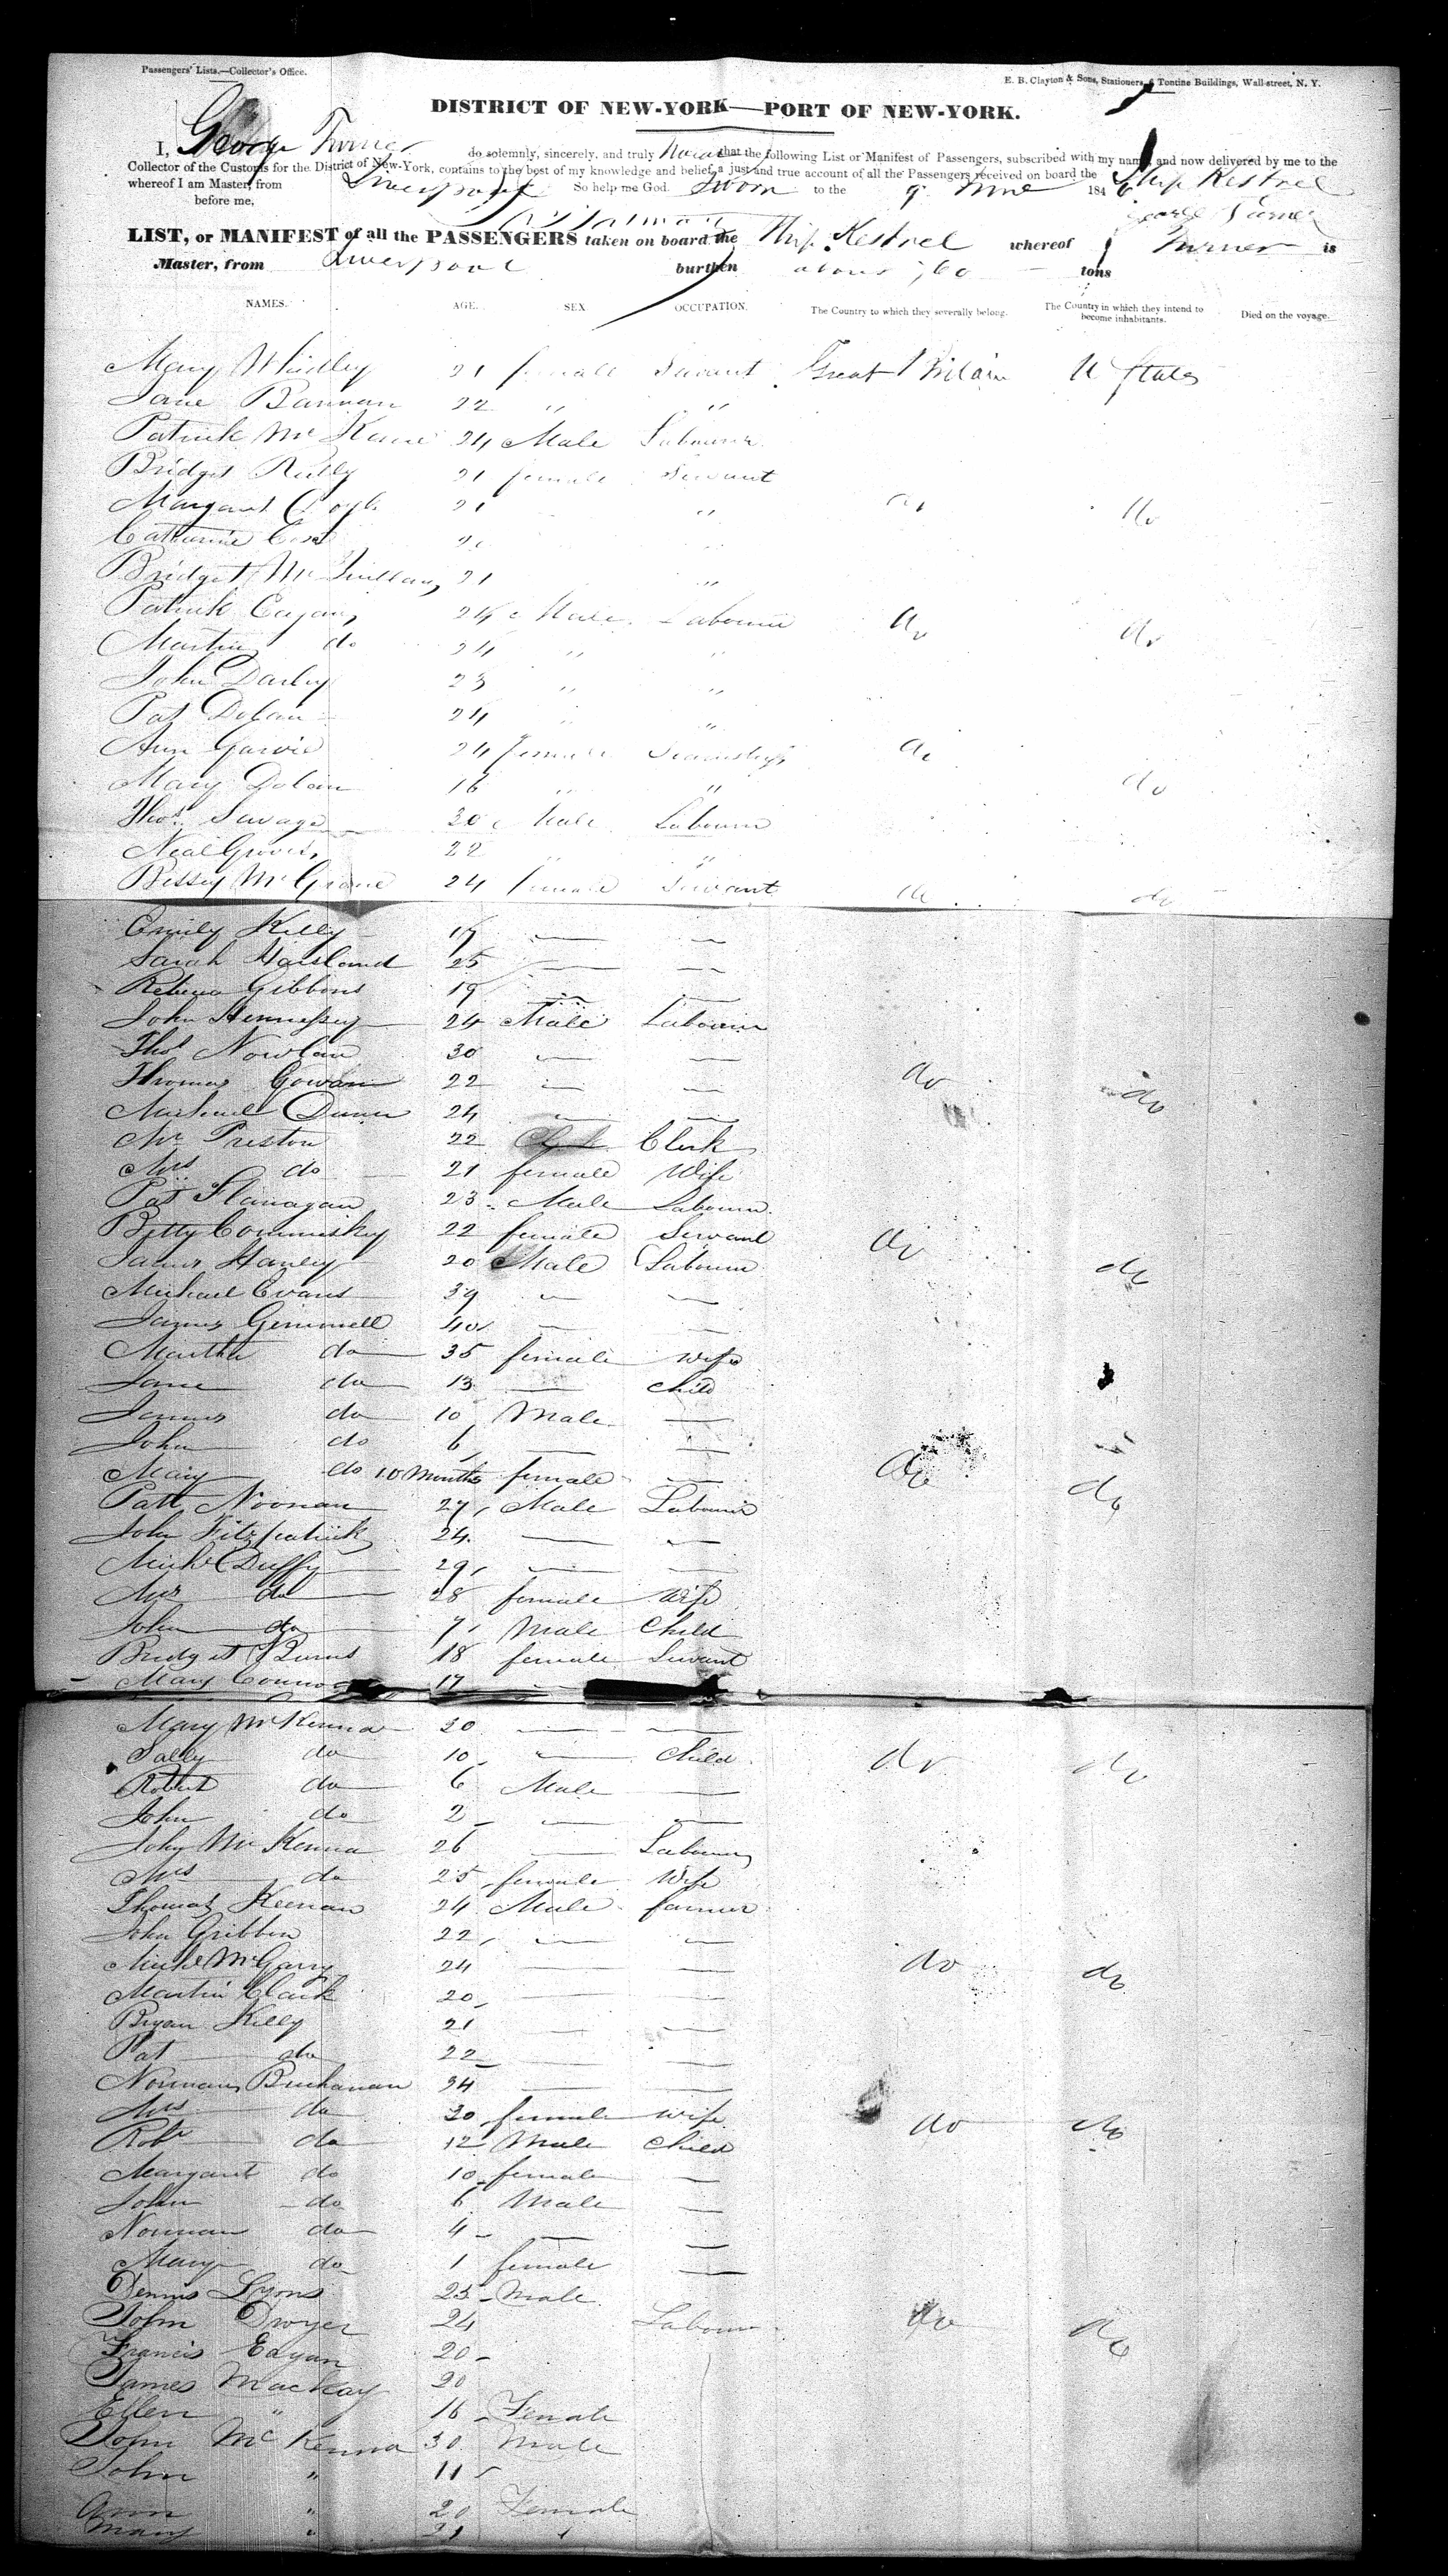 Passengers' Lists.—Collector's Office.
E. B. Clayton & Sons, Stationers, Tontine Buildings, Wall-street, N. Y.
DISTRICT OF NEW-YORK—PORT OF NEW-YORK.
I, George Turner do solemnly, sincerely, and truly swear that the following List or Manifest of Passengers, subscribed with my name, and now delivered by me to the
Collector of the Customs for the District of New-York, contains to the best of my knowledge and belief, a just and true account of all the Passengers received on board the Ship Kestrel
whereof I am Master, from Liverpool So help me God. Sworn to the 9 June 1846
before me, George Turner
LIST, or MANIFEST of all the PASSENGERS taken on board the Ship Kestrel whereof Turner is
Master, from Liverpool burthen about tons
NAMES. AGE. SEX OCCUPATION. The Country to which they severally belong. The Country in which they intend to become inhabitants. Died on the voyage.
Mary 21 female Servant Great Britain U States
Jane Bannan 22 " "
Patrick Mc Kane 24 Male Labourer
Bridget Reilly 21 female Servant
Margaret Doyle 21 " do do
Catherine
Bridget Mc 21 "
Patrick Eagan 24 Male Labourer do do
Martin do 24 " "
John Darby 23 " "
Pat Dolan 24 " "
Ann Garvie 24 female do
Mary Dolan 16 " " do
Thos. Savage 30 Male Labourer
Neal Groves 22 " "
Bessy McGrane 24 female Servant do do
Emily Kelly 19 — —
Sarah 25 — —
Rebecca Gibbons 19 — —
John Hennessey 24 Male Labourer
Thos Nowlan 30 — —
Thomas Gowan 22 — — do do
Michael Dunn 24 — —
Mr Preston 22 Clerk
Mrs do 21 female Wife
Pat Flanagan 23 Male Labourer
Betty Commiskey 22 female Servant do
James Hanley 20 Male Labourer do
Michael Evans 39 — —
James Gemmell 40 — —
Martha do 35 female Wife
Jane do 13 — Child
James do 10 Male —
John do 6 — —
Mary do 10 Months female — do do
Patk Noonan 27 Male Labourer
John Fitzpatrick 24 — —
Michl Duffy 29 — —
Mrs do 28 female Wife
John do 7 Male Child
Bridget Burns 18 female Servant
Mary 17 —
Mary McKenna 30 — —
Sally do 10 — Child do do
Robert do 6 Male —
John do 2 — —
John McKenna 26 — Labourer
Mrs do 25 female Wife
Thomas Keenan 24 Male farmer
John Gribbin 22 — —
Michl McGarry 24 — — do do
Martin Clark 20 — —
Bryan Kelly 21 — —
Pat do 22 — —
Norman Buchanan 34 — —
Mrs do 30 female Wife do do
Robt do 12 Male Child
Margaret do 10 female —
John do 6 Male —
Norman do 4 — —
Mary do 1 female —
Dennis Lyons 25 Male
John Dwyer 24 Labourer do do
Francis Eagan 20
James MacKay 20
Ellen " 16 Female
John McKenna 30 Male
John " 11
Ann " 20 Female
Mary " 21 "